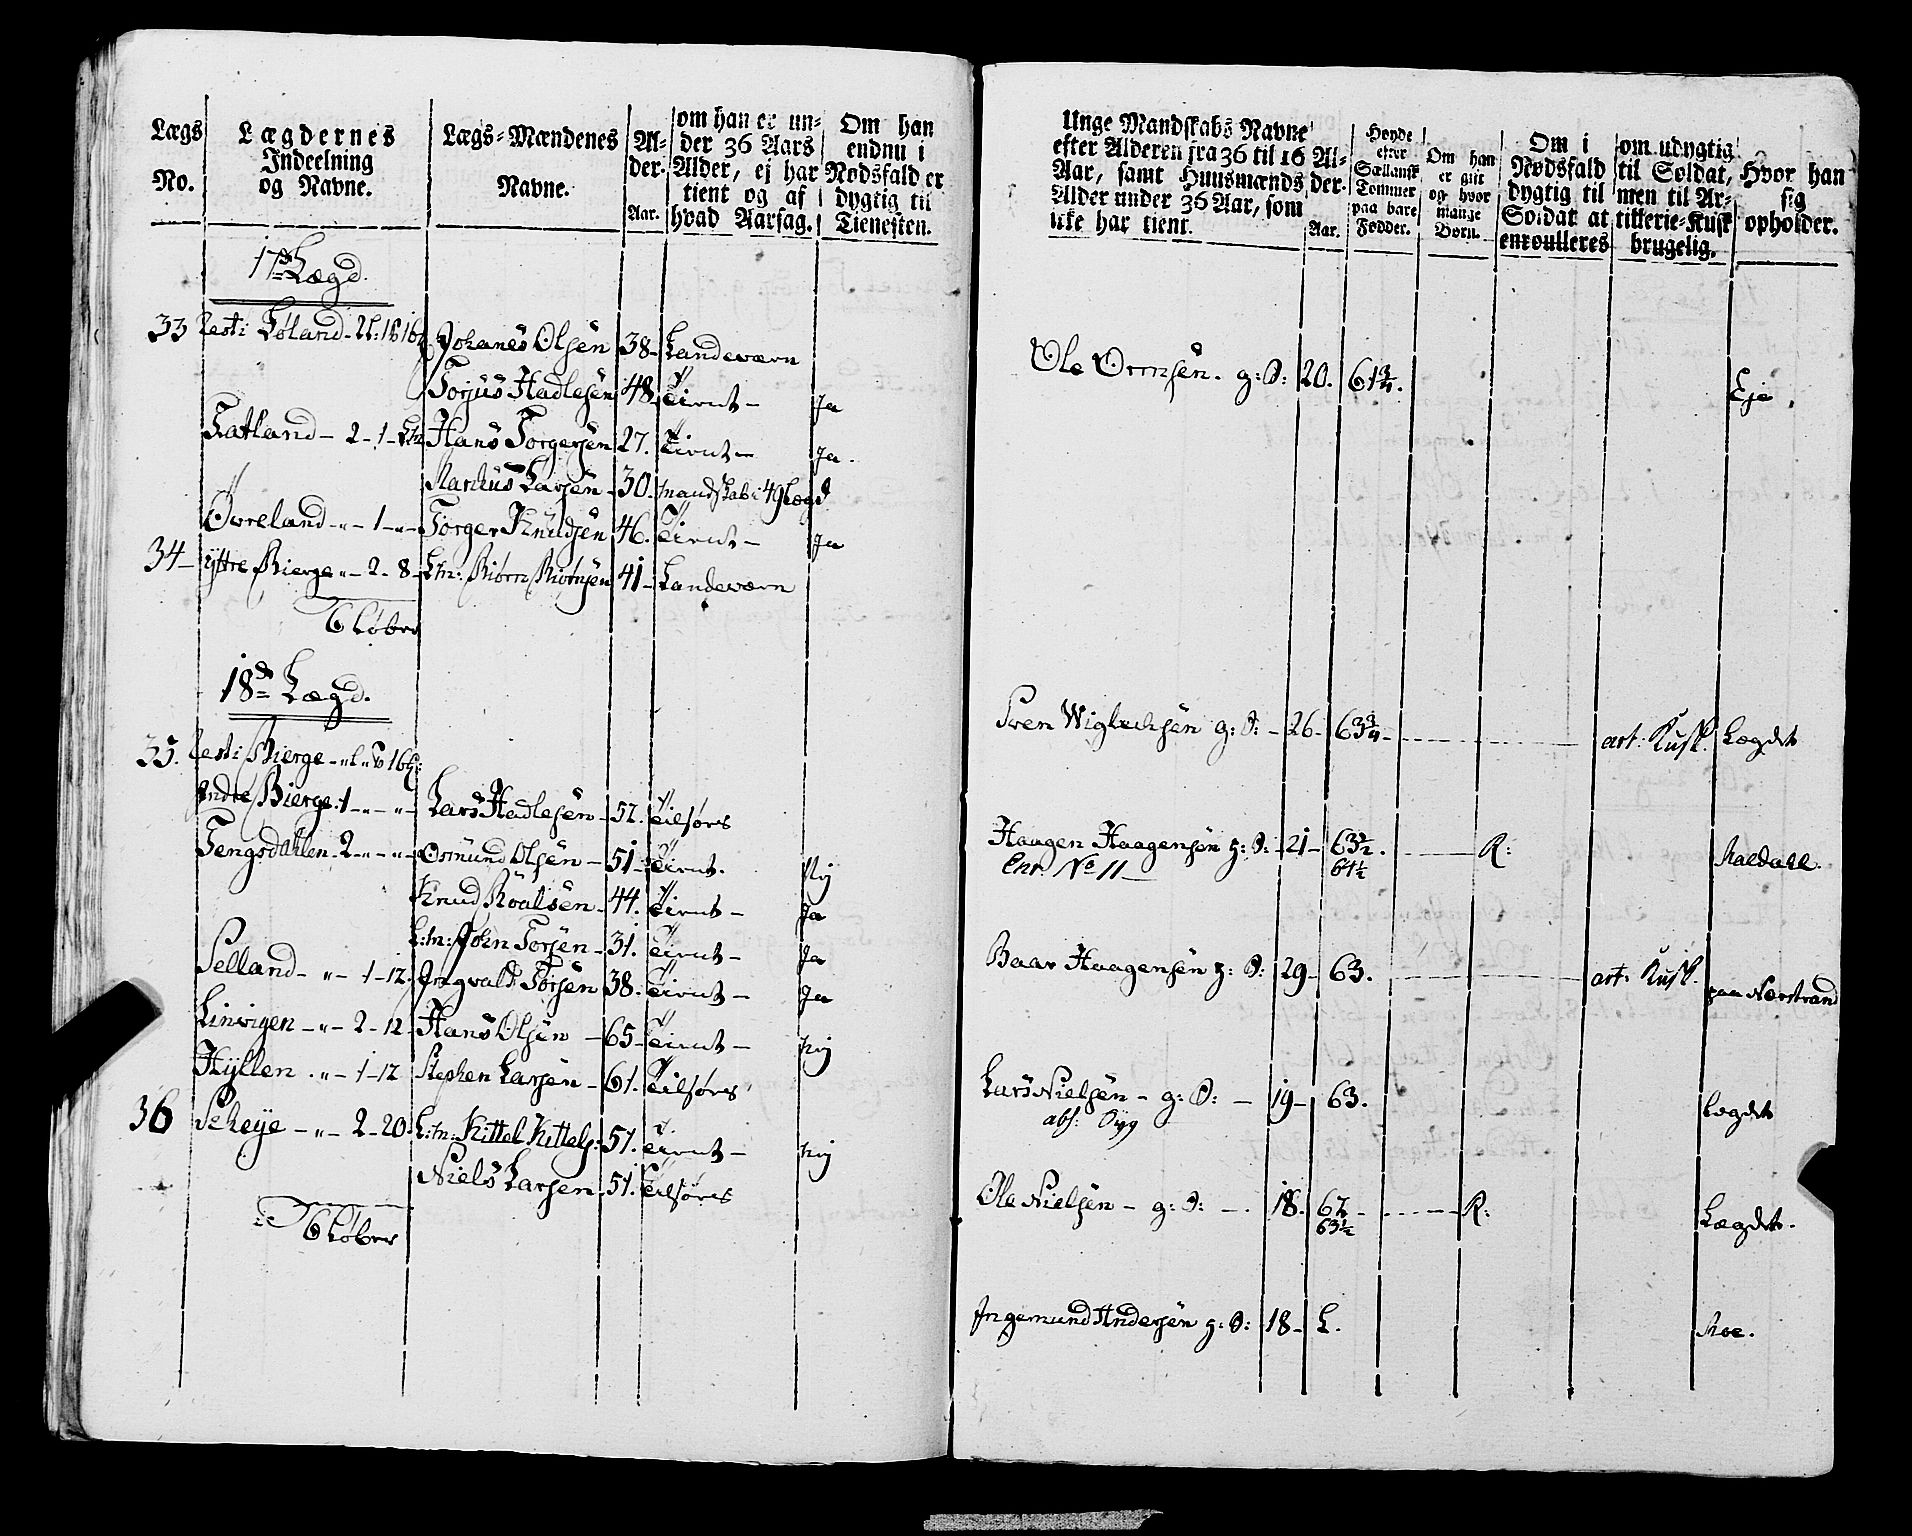 Lægs No.
Lægdernes Indeelning og Navne.
Lægs-Mændenes Navne.
Alder. Aar.
om han er under 36 Aars Alder, ej har tient og af hvad Aarsag.
Om han endnu i Nødsfald er dygtig til Tienesten.
17de Lægd.
33 Resti Løland - Johanes Olsen 38 - Landeværn
Torjus Hadlesen 48 - Tient - Ja
Fatland - 2 - 1 - Hans Torgersen 27. Tient - Ja.
Markus Larsen - 30. mandskab i 49 Lægd
Øvreland - „ - 1 - „ - Torger Knudsen 46. Tient - Ja
34 - yttre Bierge „ - 2 - 8 - L:m: Biørn Biørnsen 41 - Landeværn
6 Løber
18de Lægd.
35. Resti Bierge
Indre Bierge. 1 - „ - „ - Lars Hadlesen - 52. Tilførs
Tengsdahlen - 2 - „ - „ - Osmund Olsen - 51 - Tient. Nej
Knud Roalsen - 44. Tient - Ja
L:m: John Torsen - 31. Tient - Ja
Selland - „ - 1 - 12. Ingvald Torsen 38. Tient - Ja
Linvigen - „ - 2 - 12 - Hans Olsen - 65 - Tient - Nej
Hyllen . „ - 1 - 12 Stephen Larsen - 61. Tilførs
36 Sekeye - „ - 2 - 20. L:m: Kittel Kittels: 57. Tient - Nej
Niels Larsen - 51. Tilførs
6 Løber
Unge Mandskabs Navne efter Alderen fra 36 til 16 Aar, samt Huusmænds Alder under 36 Aar, som ikke har tient.
Alder. Aar.
Høyde efter Siællansk Tommer paa bare Fødder.
Om han er gift og hvor mange Børn.
Om i Nødsfald dygtig til Soldat at enroulleres
om udygtig til Soldat, men til Artillerie-Kusk brugelig.
Hvor han sig opholder.
Ole Ormsen. g: S: 20. 61 3/4. Eje.
Sven Wiglechsen g: S: - 26 - 63 3/4 - art: Kusk. Lægdet
Haagen Haagensen g: S: - 21 - 63 1/2. R: Maldall.
Enr. No 11 - 64 1/2
Baar Haagensen g: S: 29 - 63. - art: Kusk. paa Nærstrand
Lars Nielsen - g: S: - 19 - 63. Lægdet
abs: Syg
Ole Nielsen - g: S: - . 18. 62 - R: Lægdet.
63 1/2
Ingemund Andersen g: S: 18 - L. Moe.